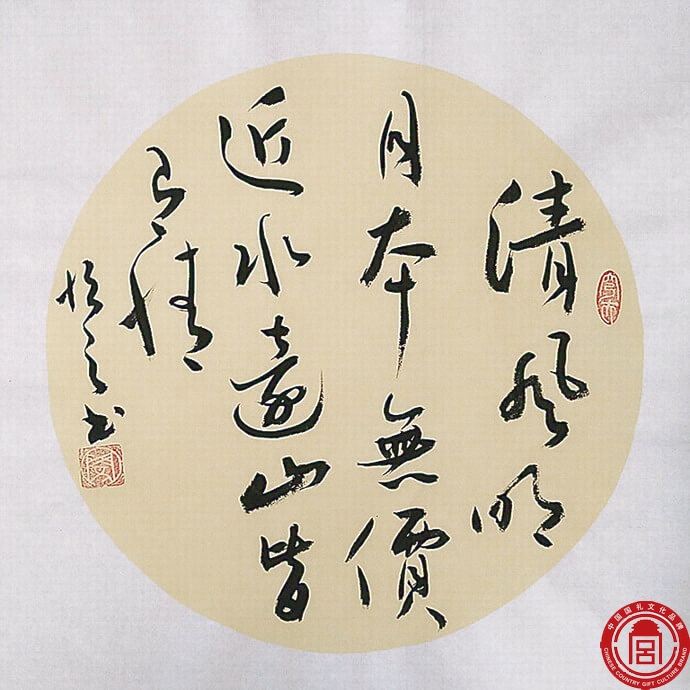 清风明
月本無價
近水遠山皆
有情
書
中国国礼文化品牌
宫
CHINESE COUNTRY GIFT CULTURE BRAND